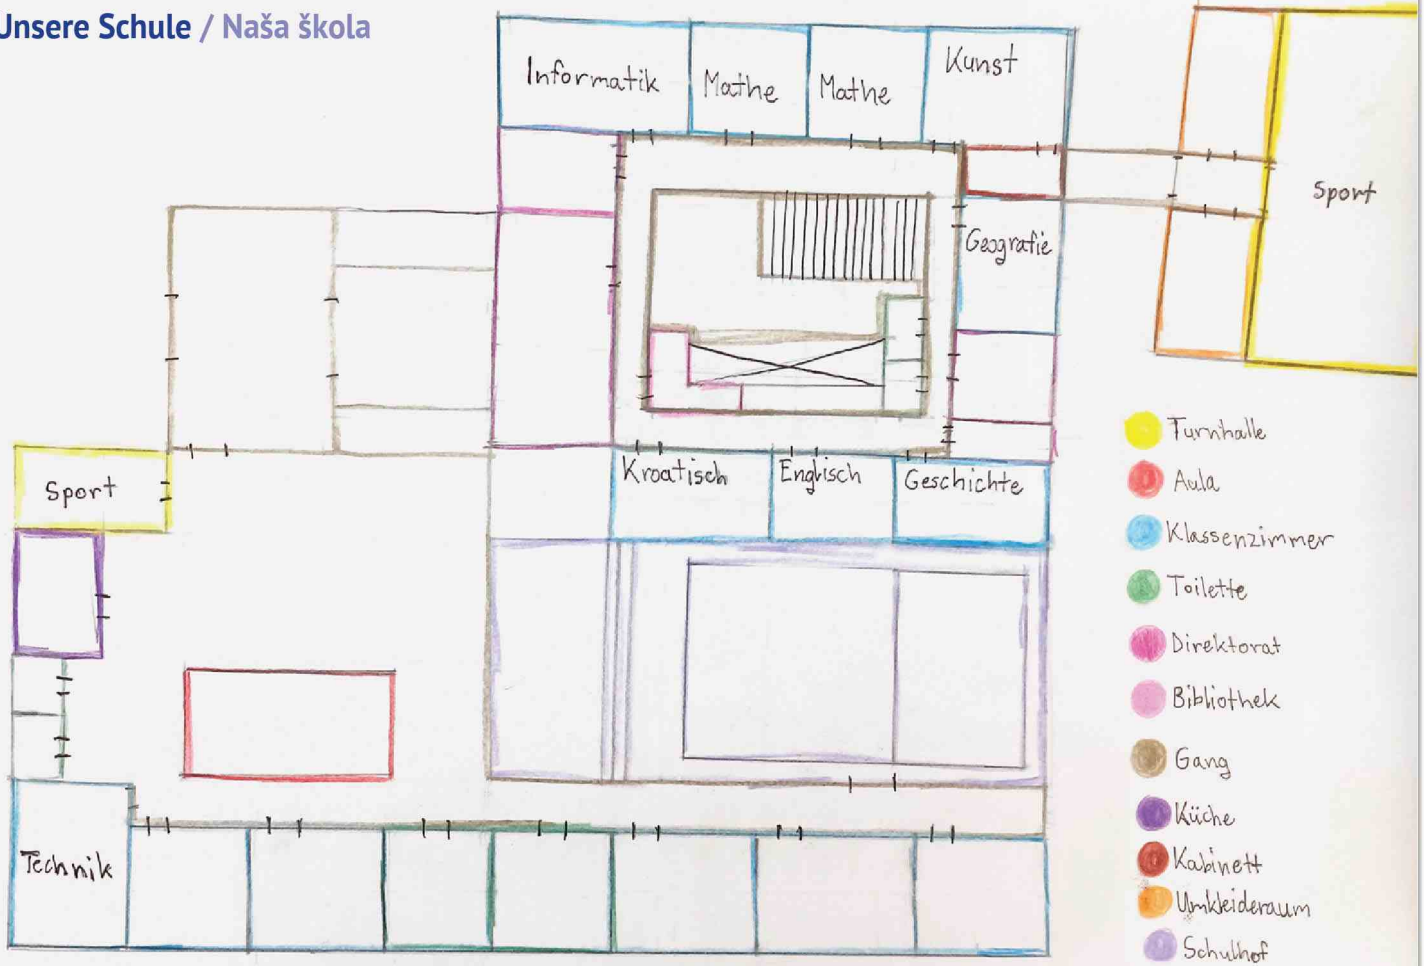 Unsere Schule / Naša škola
Informatik
Mathe
Mathe
Kunst
Sport
Geografie
Sport
Kroatisch
Englisch
Geschichte
Technik
Turnhalle
Aula
Klassenzimmer
Toilette
Direktorat
Bibliothek
Gang
Küche
Kabinett
Umkleideraum
Schulhof